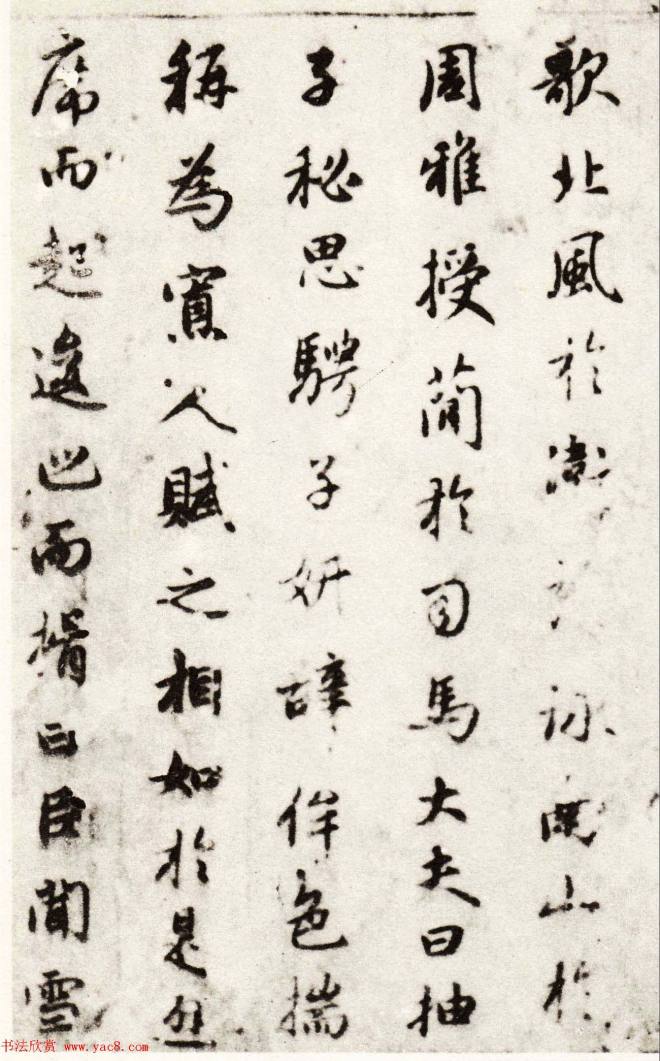 歌北風於衛詩詠南山於
周雅授簡於司馬大夫曰抽
子秘思騁子妍辭侔色揣
稱為寡人賦之相如於是避
席而起逡巡而揖曰臣聞雪
书法欣赏 www.yac8.com